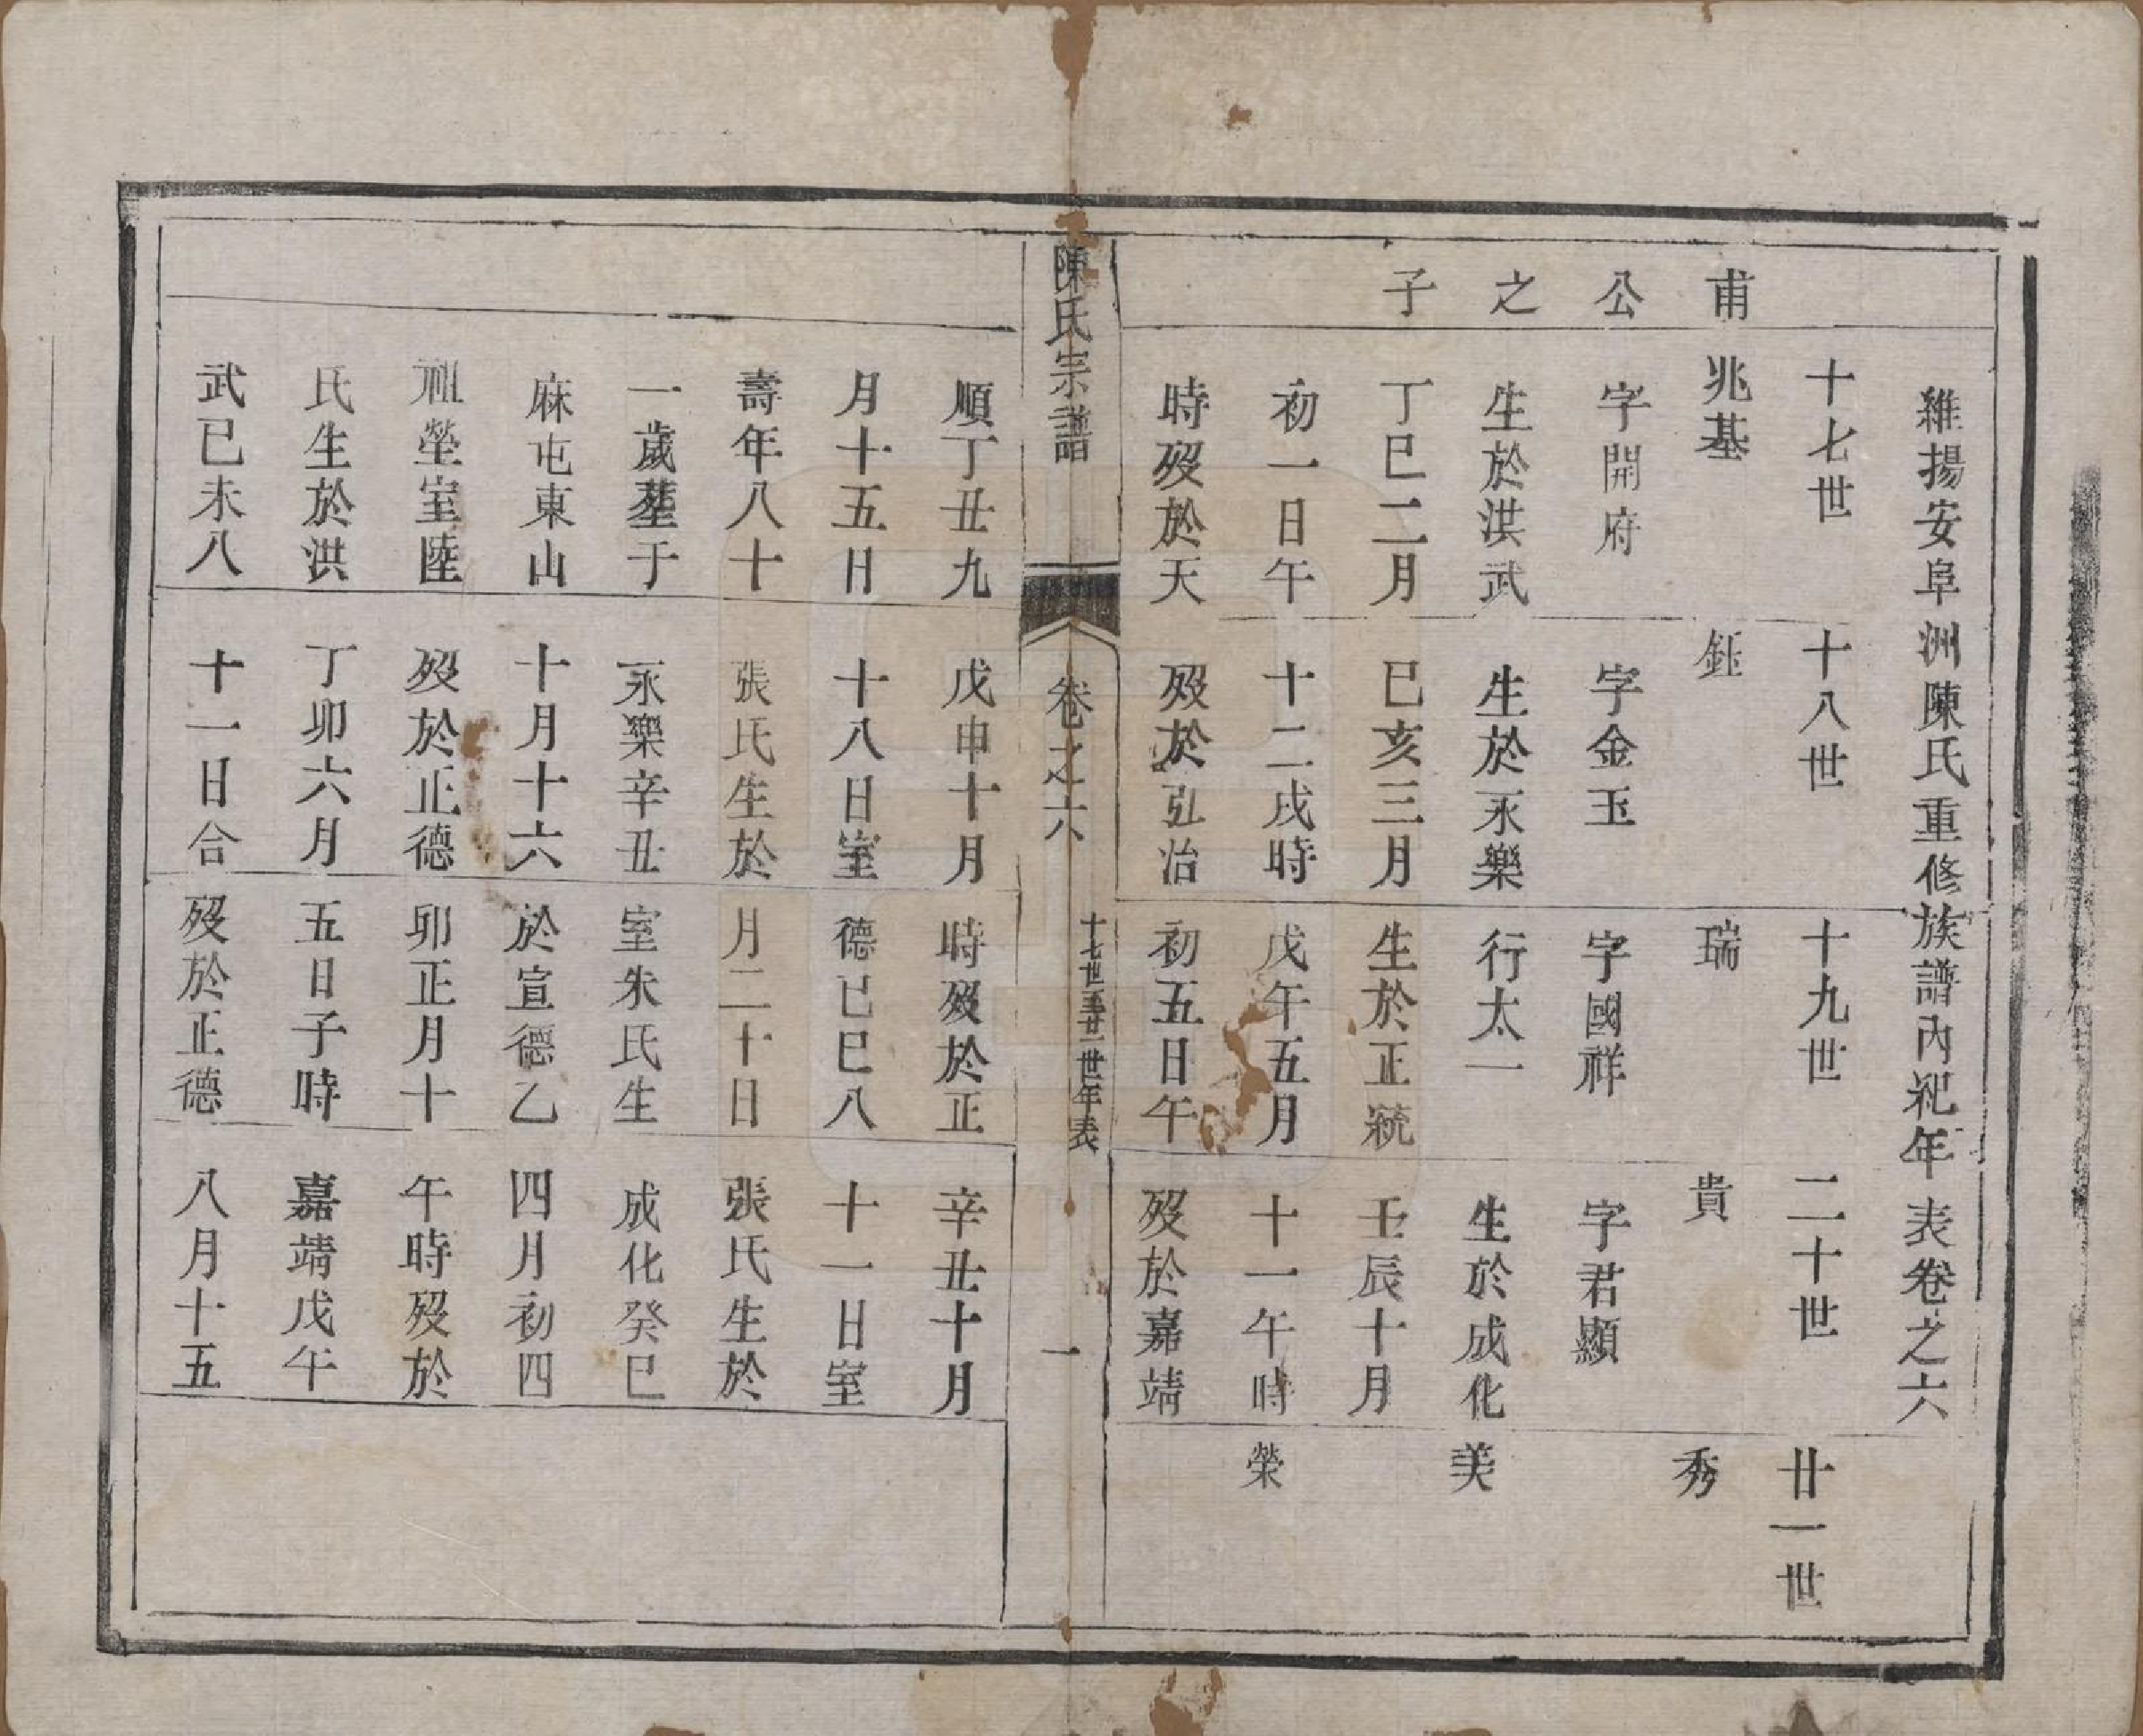 維揚安阜洲陳氏重修族譜內紀年表卷之六
甫公之子
十七世
兆基
字開府
生於洪武
丁巳二月
初一日午
時歿於天
十八世
鈺
字金玉
生於永樂
己亥三月
十二戌時
歿於弘治
十九世
瑞
字國祥
行太一
生於正統
戊午五月
初五日午
二十世
貴
字君顯
生於成化
壬辰十月
十一午時
歿於嘉靖
廿一世
秀
美
榮
陳氏宗譜
卷之六
十七世至廿一世年表
一
順丁丑九
月十五日
壽年八十
一歲塟于
麻屯東山
祖塋室陸
氏生於洪
武己未八
戊申十月
十八日室
張氏生於
永樂辛丑
十月十六
歿於正德
丁卯六月
十一日合
時歿於正
德己巳八
月二十日
室朱氏生
於宣德乙
卯正月十
五日子時
歿於正德
辛丑十月
十一日室
張氏生於
成化癸巳
四月初四
午時歿於
嘉靖戊午
八月十五